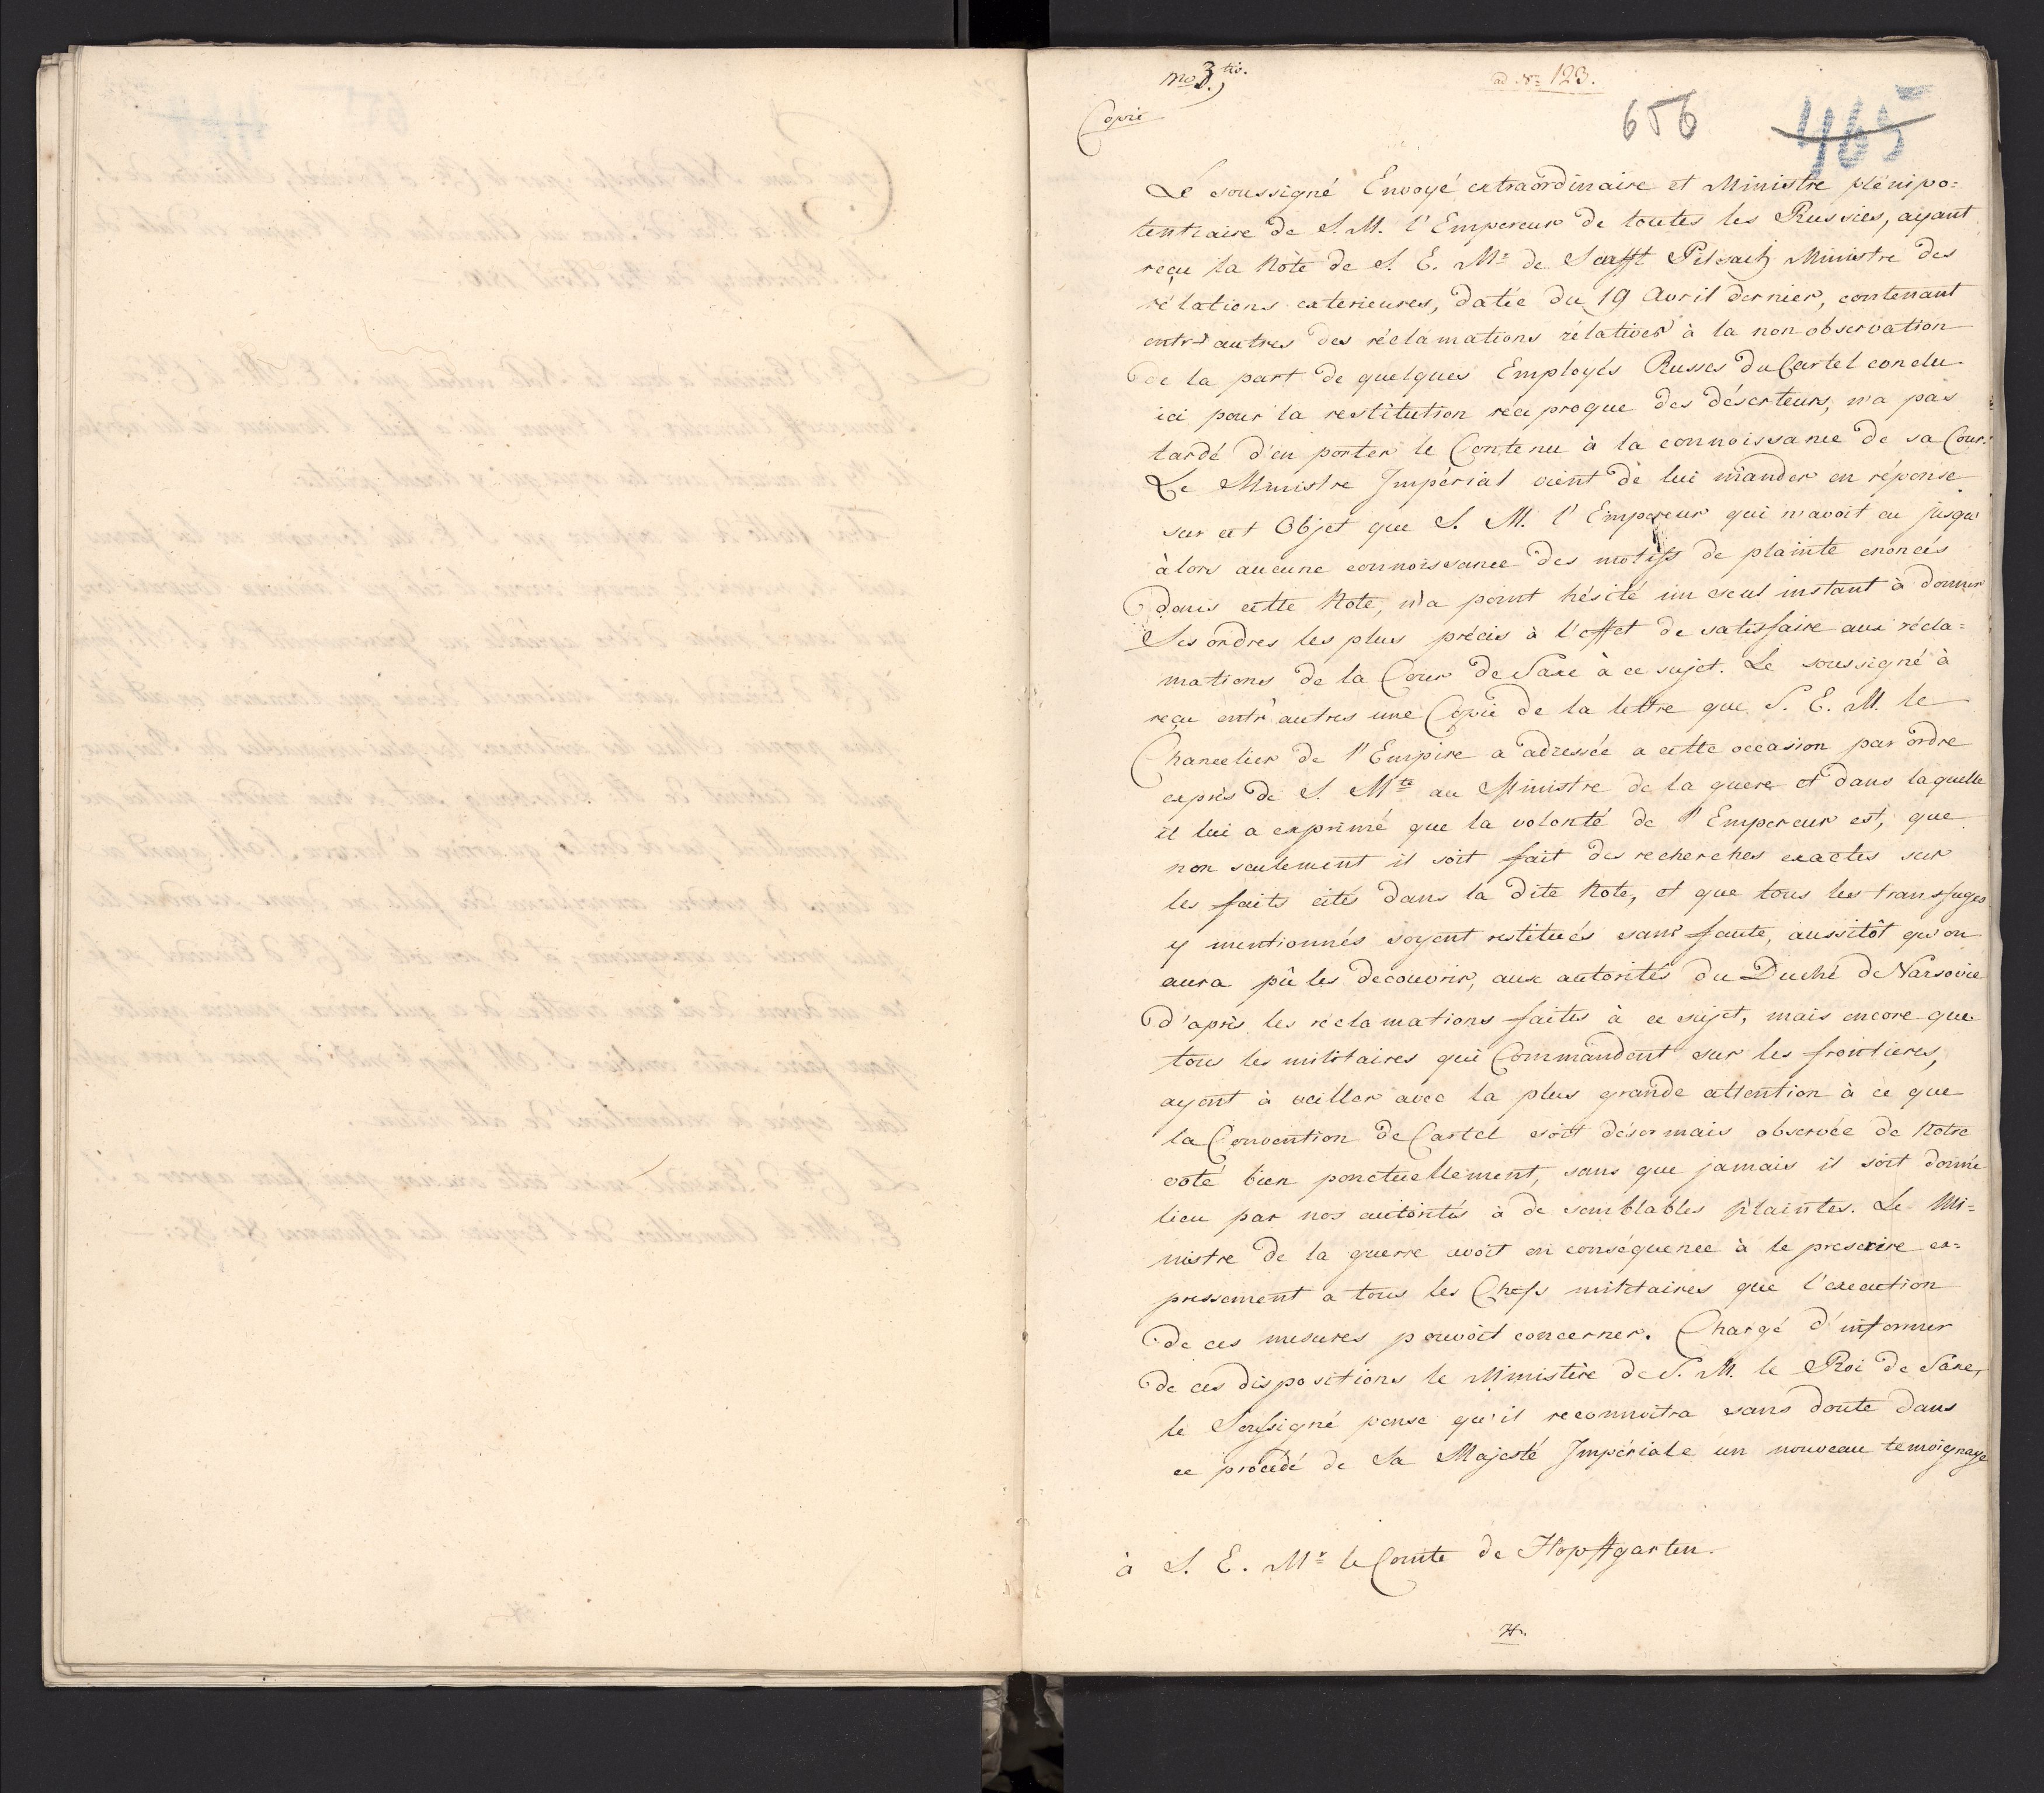 no 3. tio.
ad No 123.
Copie
656 465
Le soussigné Envoyé extraordinaire et Ministre plénipo=
tentiaire de S. M. l'Empereur de toutes les Russies, ayant
reçu la Nôte de S. E. Mr de Senfft Pilsach Ministre des
rélations exterieures, datée du 19 Avril dernier, contenant
entr'autres des réclamations rélatives à la non observation
de la part de quelques Employés Russes du Cartel conclu
ici pour la restitution réciproque des déserteurs, n'a pas
tardé d'en porter le Contenu à la connoissance de sa Cour.
Le Ministre Impérial vient de lui mander en réponse
sur cet Objet que S. M. l'Empereur qui n'avoit eu jusqu'
àlors aucune connoissance des motifs de plainte enoncés
dans cette Note, n'a point hésité un seul instant à donner
Ses ordres les plus précis à l'effet de satisfaire aux récla=
mations de la Cour de Saxe à ce sujet. Le soussigné à
reçu entr'autres une Copie de la lettre que S. E. M. le
Chancelier de l'Empire a adressée a cette occasion par ordre
exprès de S. Mté au Ministre de la guere et dans laquelle
il lui a exprimé que la volonté de l'Empereur est, que
non seulement il soit fait des recherches exactes sur
les faits cités dans la dite Note, et que tous les transfuges
y mentionnés soyent restitués sans faute, aussitôt qu'on
aura pû les decouvrir, aux autorités du Duché de Varsovie
d'après les réclamations faites à ce sujet, mais encore que
tous les militaires qui Commandent sur les frontieres,
ayent à veiller avec la plus grande attention à ce que
la Convention de Cartel soit désormais observée de Notre
coté bien ponctuellement, sans que jamais il soit donné
lieu par nos autorités à de semblables plaintes. Le Mi=
nistre de la guerre avoit en conséquence à le prescrire ex=
pressement a tous les Chefs militaires que l'execution
de ces mesures pouvoit concerner. Chargé d'informer
de ces dispositions le Ministère de S. M. le Roi de Saxe,
le Soussigné pense qu'il reconnoitra sans doute dans
ce procédé de Sa Majesté Impériale un nouveau temoignage
à S. E. Mr le Comte de Hopffgarten.